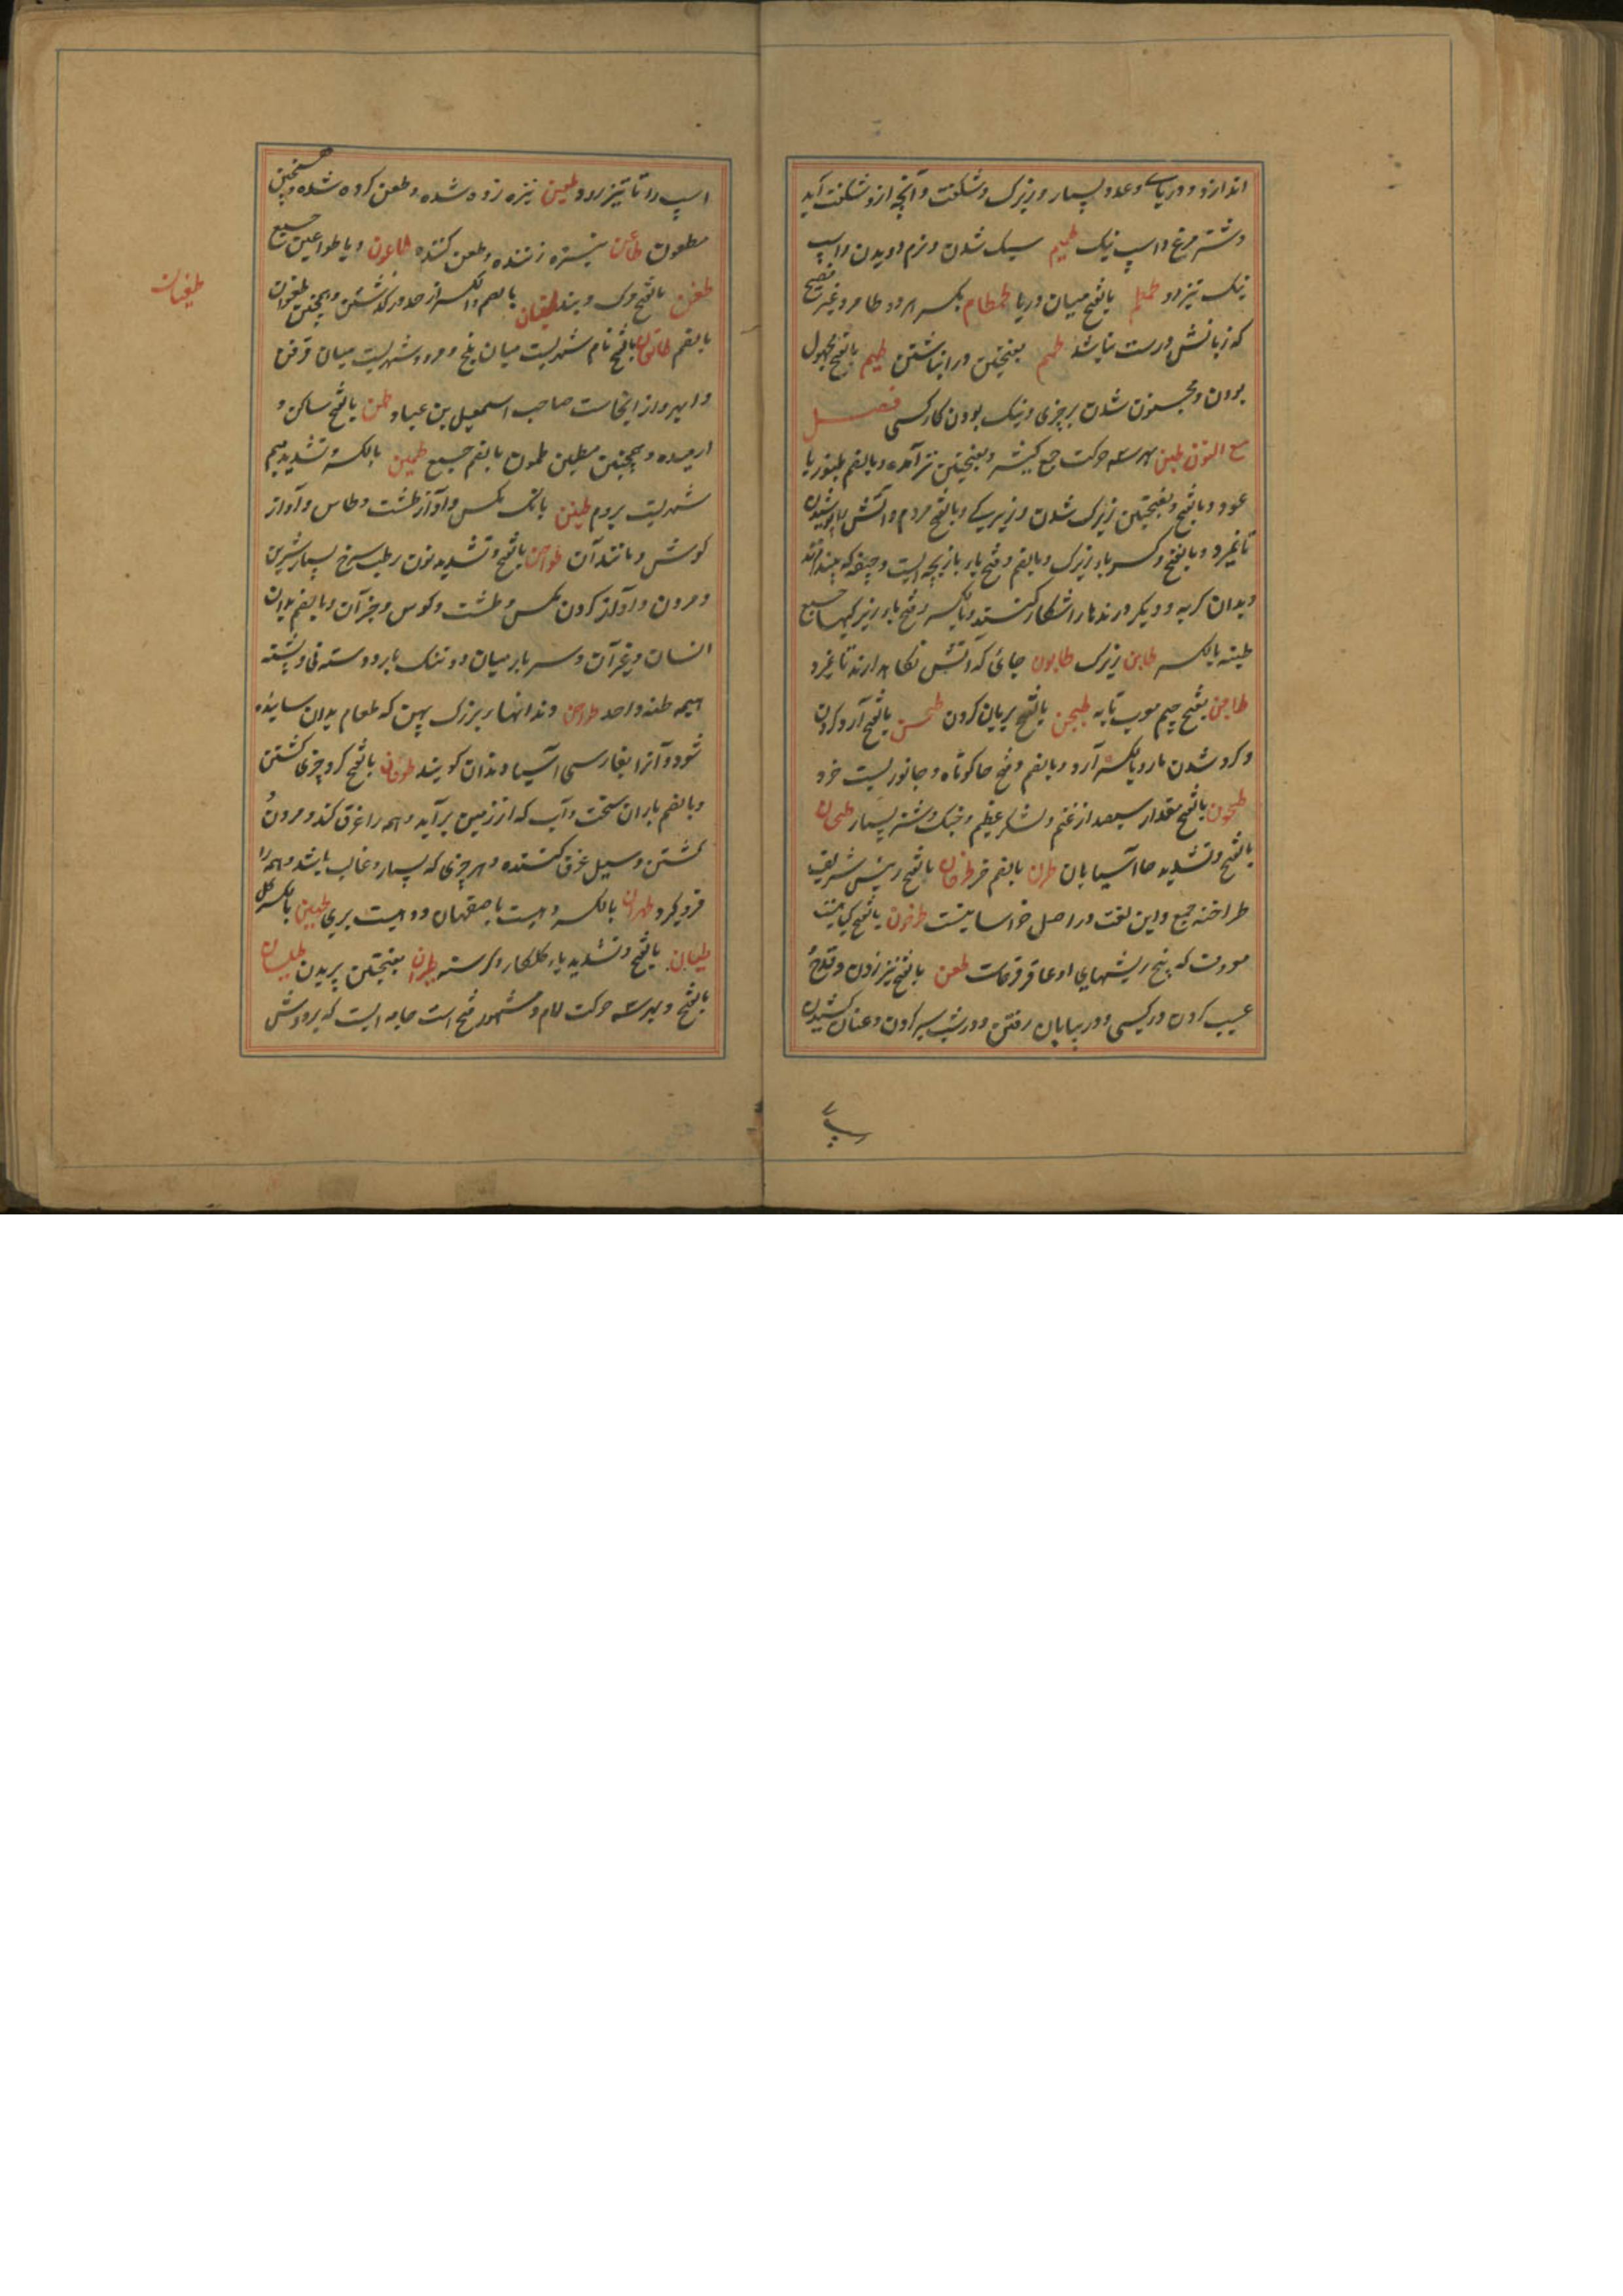 اندازد و دریای و عدد بسیار و بزرگ و شگفت و آنچه ازو شگفت آید
و شتر مرغ و اسپ نیک طمیم سبک شدن و نرم دویدن و اسپ
نیک تیزرو طمطم بالفتح میان دریا طمطام بکسر هر دو طا مرد غیر فصیح
که زبانش درست نباشد طهم بفتحتین در انباشتن طیم بالفتح مجهول
بودن و مجنون شدن بر چیزی و نیک بودن کار کسی فصل
مع النون طبن بهر سه حرکت جمع کثیر و بفتحتین نیز آمده و بالضم طنبور یا
عود و بالفتح و بفتحتین زیرک شدن و زیرکی و بالفتح مردم و آتش را پوشیدن
تا نمیرد و بالفتح و کسر با زیرک و بالضم و فتح با بازیچه ایست و جیفه که بیندازند
و بدان کرپه و دیگر درندها را شکار کنند و بالکسر و فتح با زیرکیها جمع
طبنه بالکسر طابن زیرک طابون جائی که آتش نگاه دارند تا نمیرد
طاجن بفتح جیم معرب تابه طجن بالفتح بریان کردن طحن بالفتح آرد کردن
و گرد شدن مار و بالکسر آرد و بالضم و فتح حا کوتاه و جانوریست خرد
طحون بالفتح مقدار سیصد از غنم و لشکر عظیم و جنگ و شتر بسیار طحان
بالفتح و تشدید حا آسیابان طرن بالضم خز طرخان بالفتح رئیس شریف
طراخنه جمع و این لغت در اصل خراسانیست طرخون بالفتح گیاهیست
معروف که بیخ ریشهای او عاقرقرحاست طعن بالفتح نیزه زدن و قدح
عیب کردن در کسی و در بیابان رفتن و در شب سیر کردن و عنان کشیدن
اسپ را تا تیز رود طعین نیزه زده شده و طعن کرده شده و همچنین
مطعون طاعن نیزه زننده و طعن کننده طاعون وبا طواعین جمع
طغن بالفتح مرگ و بند طغیان بالضم و الکسر از حد درگذشتن و همچنین طغوان
بالضم طالقان بالفتح نام شهریست میان بلخ و مرو و شهریست میان قزوین
و ابهر و از انجاست صاحب اسمعیل بن عباد طمن بالفتح ساکن و
آرمیده و همچنین مطمئن طمون بالضم جمع طمین بالکسر و تشدید میم
شهریست بروم طنین بانگ مگس و آواز طشت و طاس و آواز
گوش و مانند آن طن بالفتح و تشدید نون رطب سرخ بسیار شیرین
و مردن و آواز کردن مگس و طشت و کوس و جز آن و بالضم بدن
انسان و غیر آن و سر بار میان دو تنگ بار و دسته نی و پشته
هیمه طنه واحد طواحن دندانهای بزرگ پهن که طعام بدان ساییده
شود و آنرا بفارسی آسیا دندان گویند طوفان بالفتح گرد چیزی گشتن
و بالضم باران سخت و آب که از زمین برآید و همه را غرق کند و مردن
کشتن و سیل غرق کننده و هر چیزی که بسیار و غالب باشد و همه را
فرو گیرد طهران بالکسر دهیست باصفهان و دهیست بری طین بالکسر گل
طیان بالفتح و تشدید یا گلکار و گرسنه طیران بفتحتین پریدن طیلسان
بالفتح و بهر سه حرکت لام و مشهور فتح است جامه ایست که بر دوش
طغیان
اسپ